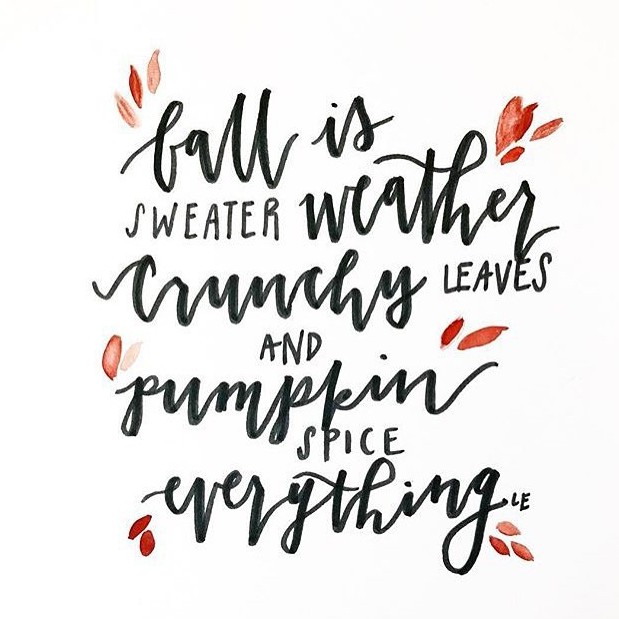 fall is
SWEATER weather
crunchy LEAVES
AND
pumpkin
SPICE
everything
LE